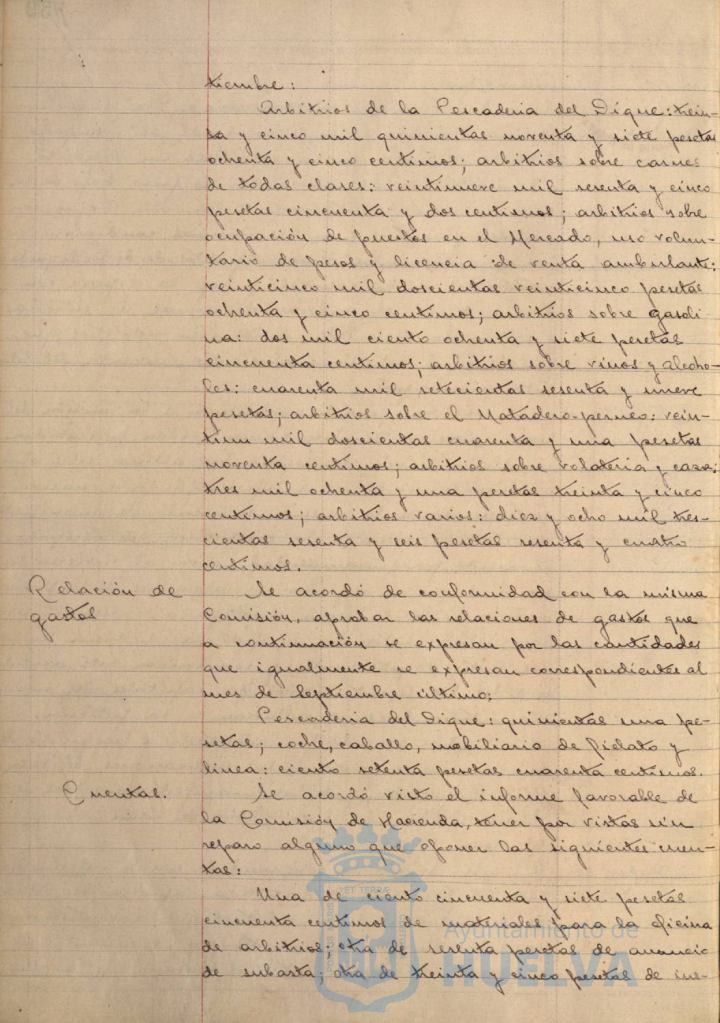 tiembre:
Arbitrios de la Pescaderia del Dique: trein-
ta y cinco mil quinientas noventa y siete pesetas
ochenta y cinco centimos; arbitrios sobre carnes
de todas clases: veintinueve mil sesenta y cinco
pesetas cincuenta y dos centimos; arbitrios sobre
ocupación de puestos en el Mercado, uso volun-
tario de pesos y licencia de venta ambulante:
veinticinco mil doscientas veinticinco pesetas
ochenta y cinco centimos; arbitrios sobre gasoli
na: dos mil ciento ochenta y siete pesetas
cincuenta centimos; arbitrios sobre vinos y alcoho-
les: cuarenta mil setecientas sesenta y nueve
pesetas; arbitrios sobre el Matadero-perneo: vein-
tiun mil doscientas cuarenta y una pesetas
noventa centimos; arbitrios sobre volateria y caza:
tres mil ochenta y una pesetas treinta y cinco
centimos; arbitrios varios: diez y ocho mil tres-
cientas sesenta y seis pesetas sesenta y cuatro
centimos.
Relación de
gastos
Se acordó de conformidad con la misma
Comisión, aprobar las relaciones de gastos que
a continuación se expresan por las cantidades
que igualmente se expresan correspondientes al
mes de Septiembre último:
Pescaderia del Dique: quinientas una pe-
setas; coche, caballo, mobiliario de fielato y
linea: ciento setenta pesetas cuarenta centimos.
Cuentas.
Se acordó visto el informe favorable de
la Comisión de Hacienda, tener por vistas sin
reparo alguno que oponer las siguientes cuen-
tas:
Una de ciento cincuenta y siete pesetas
cincuenta centimos de materiales para la oficina
de arbitrios; otra de sesenta pesetas de anuncio
de subasta; otra de treinta y cinco pesetas de ins-
Ayuntamiento de
HUELVA